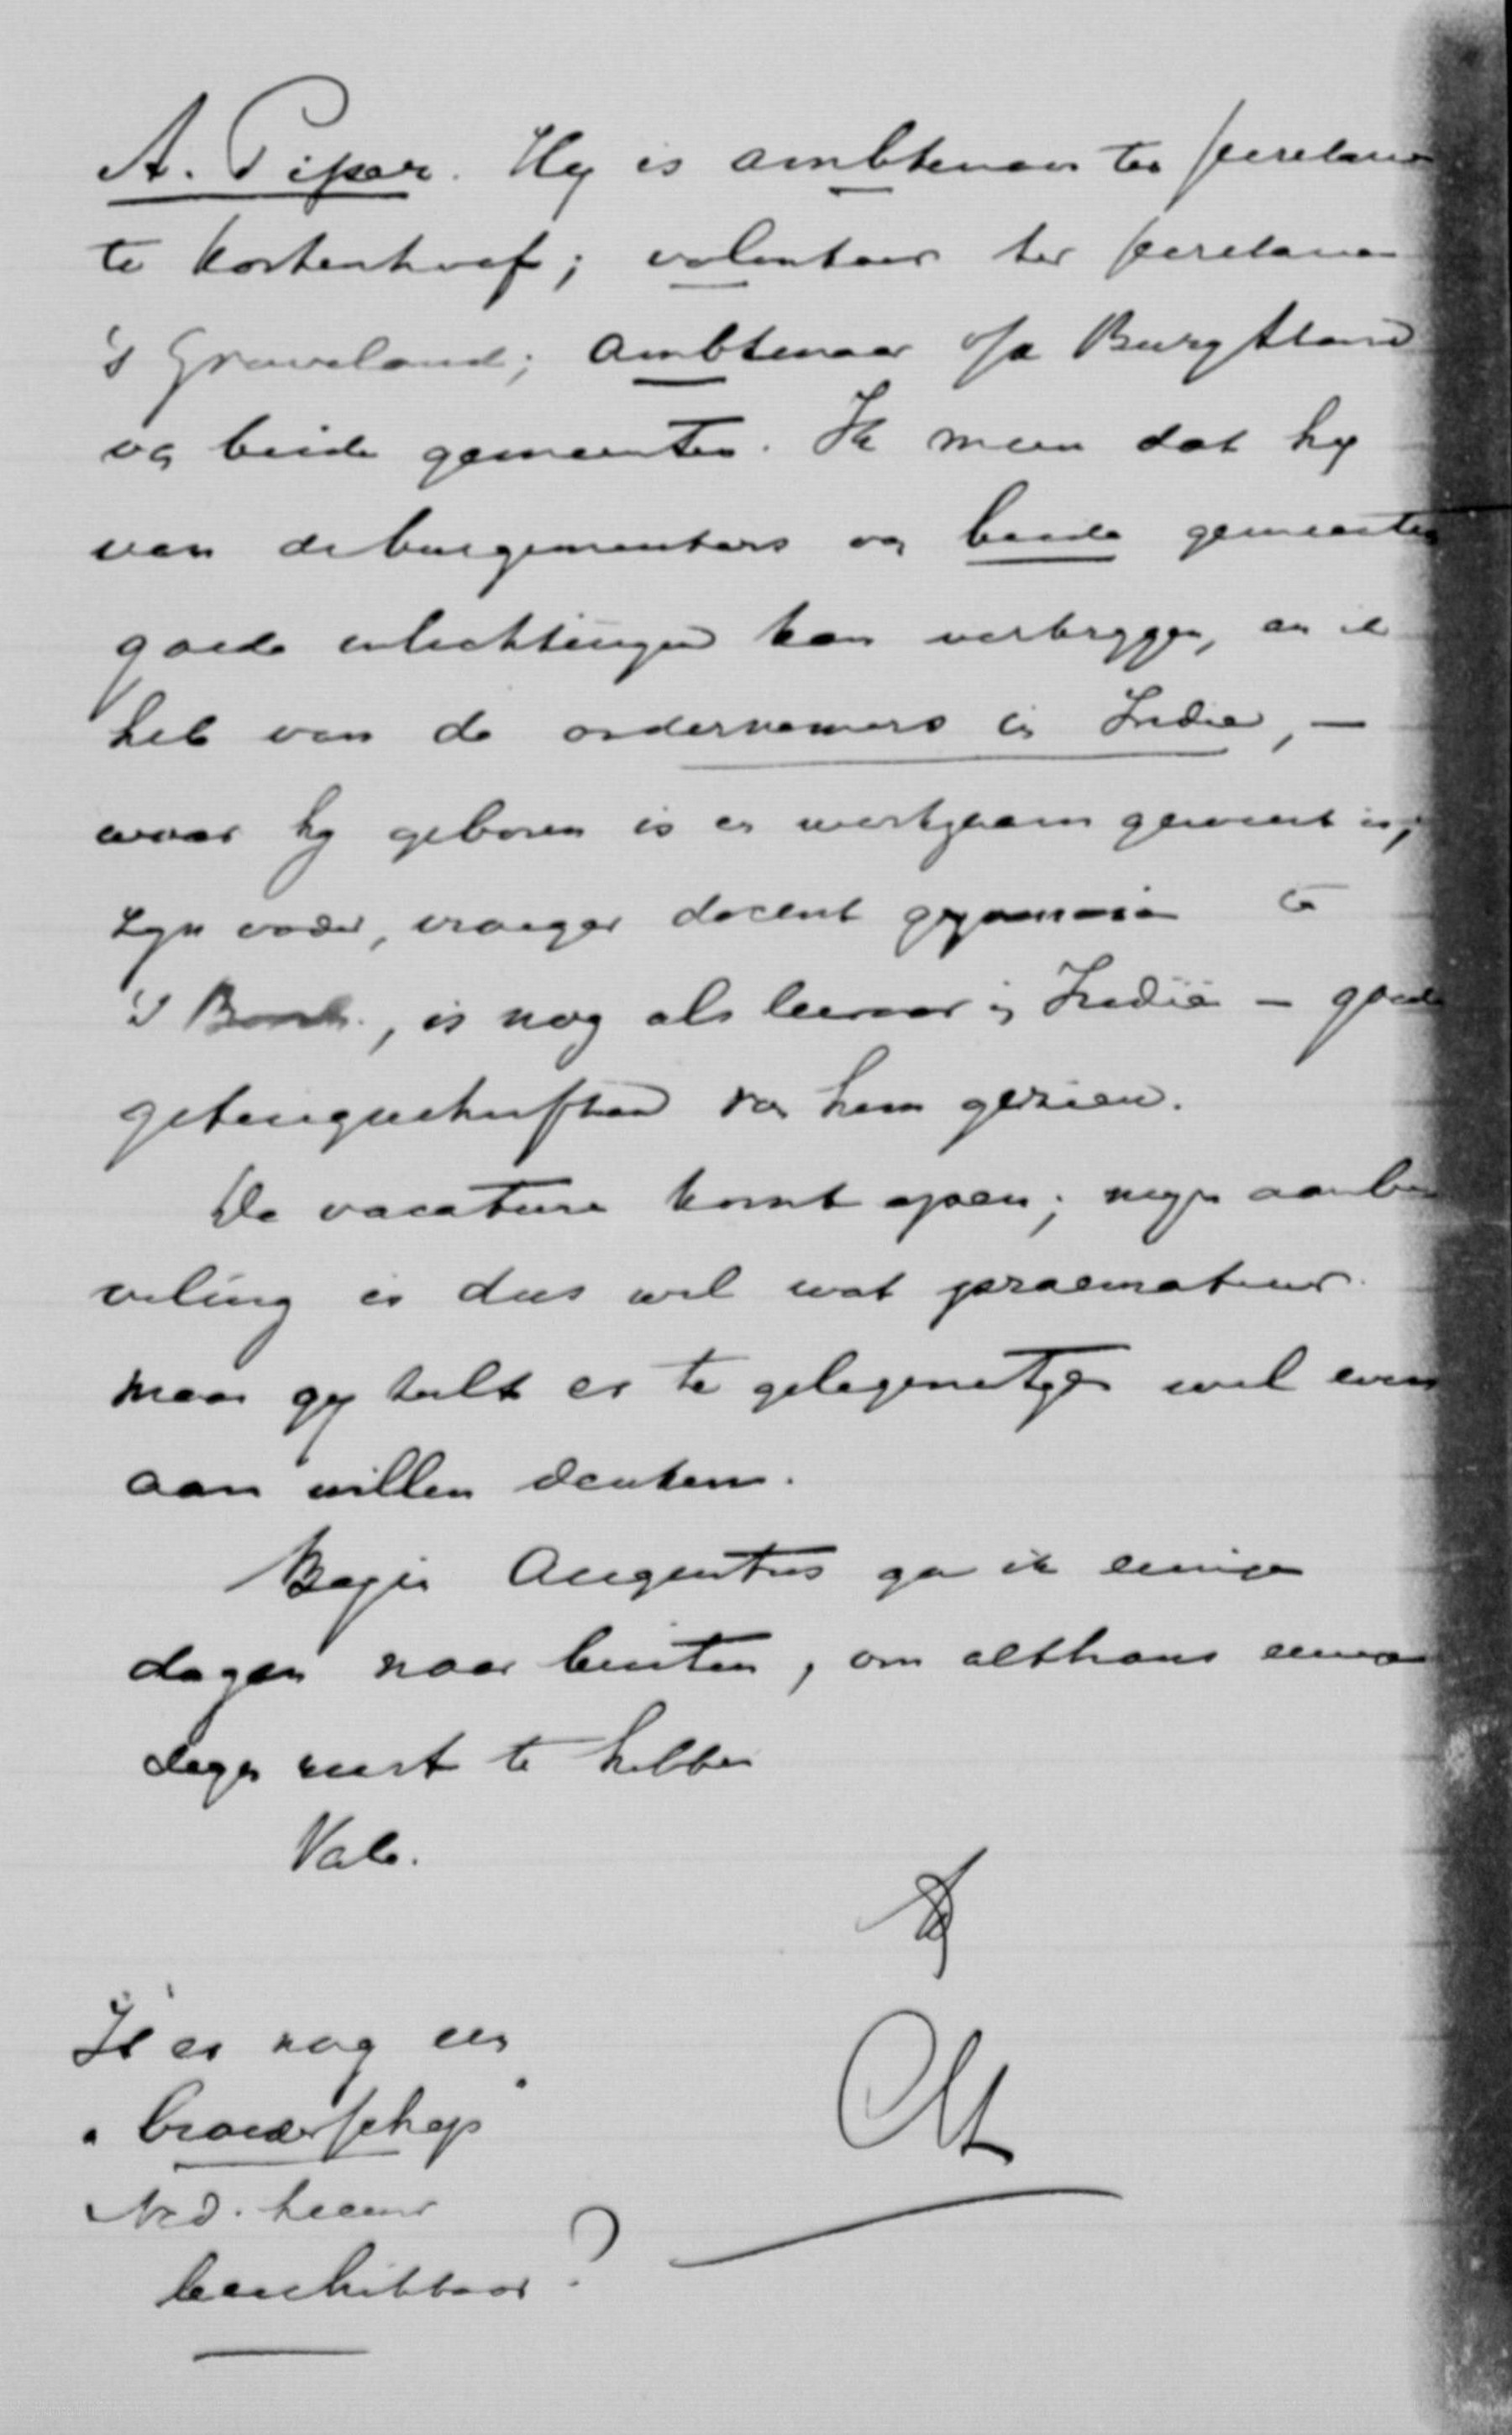 A. Piper. Hy is ambtenaar ter secretarie
te Kortenhoef; volontair ter secretarie
's Graveland; ambtenaar o/d Burg Stand
van beide gemeenten. Ik meen dat hy
van de burgemeesters van beide gemeenten
goede inlichtingen kan verkrygen, en ik
heb van de ondernemers in Indie, -
waar hy geboren is en werkzaam geweest is,
zyn vader, vroeger docent gymnasium te
's Bosch., is nog als leeraar in Indië - goede
getuigschriften van hem gezien.
De vacature komt open; myn aanbe
veling is dus wel wat praematuur
maar gy zult er te gelegenertyd wel even
aan willen denken.
Begin Augustus ga ik eenige
dagen naar buiten, om althans eenige
dagen rust te hebben
Vale.
Is er nog een
"broederschap"
Ned. leeuw
beschikbaar?